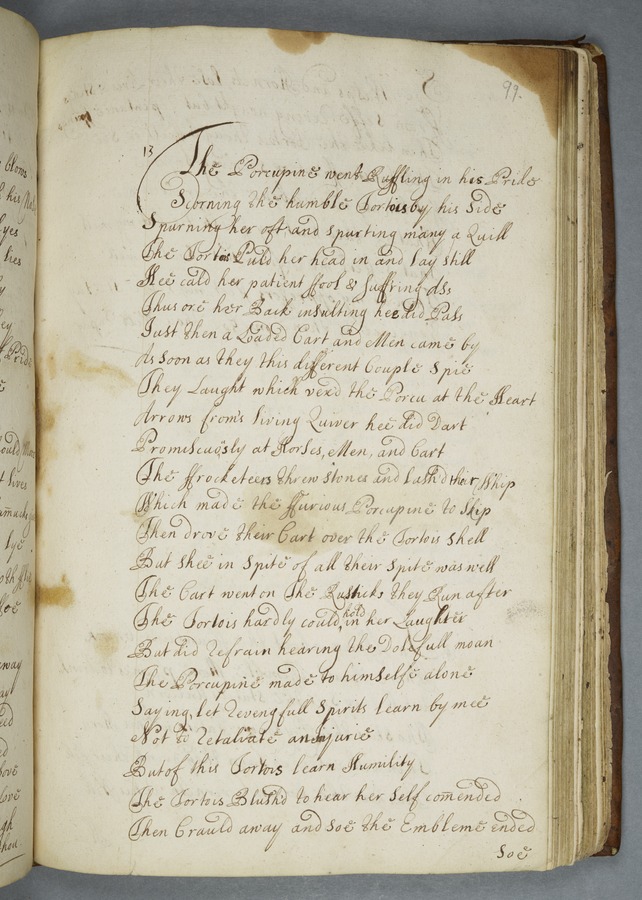 99.
13
The Porcupine went Ruffling in his Pride
Scorning the humble Tortois by his Side
Spurning her oft and spurting many a Quill
The Tortois Puld her head in and lay still
Hee cald her patient ffool & suffring Ass
Thus ore her Back insulting hee did Pass
Just then a Loaded Cart and Men came by
As soon as they this different Couple spie
They Laught which vexd the Porcu at the Heart
Arrows from's living Quiver hee did Dart
Promiscuously at Horses, Men, and Cart
The ffrocketeers threw stones and lash'd their Whip
Which made the ffurious Porcupine to skip
Then drove their Cart over the Tortois shell
But shee in spite of all their spite was well
The Cart went on The Rusticks they Run after
The Tortois hardly could hold in her Laughter
But did refrain hearing the Dolefull moan
The Porcupine made to himselfe alone
Saying, let revengfull Spirits learn by mee
Not to retaliate an injurie
But of this Tortois learn Humility
The Tortois Blushd to hear her self comended
Then Crauld away and soe the Embleme ended
Soe